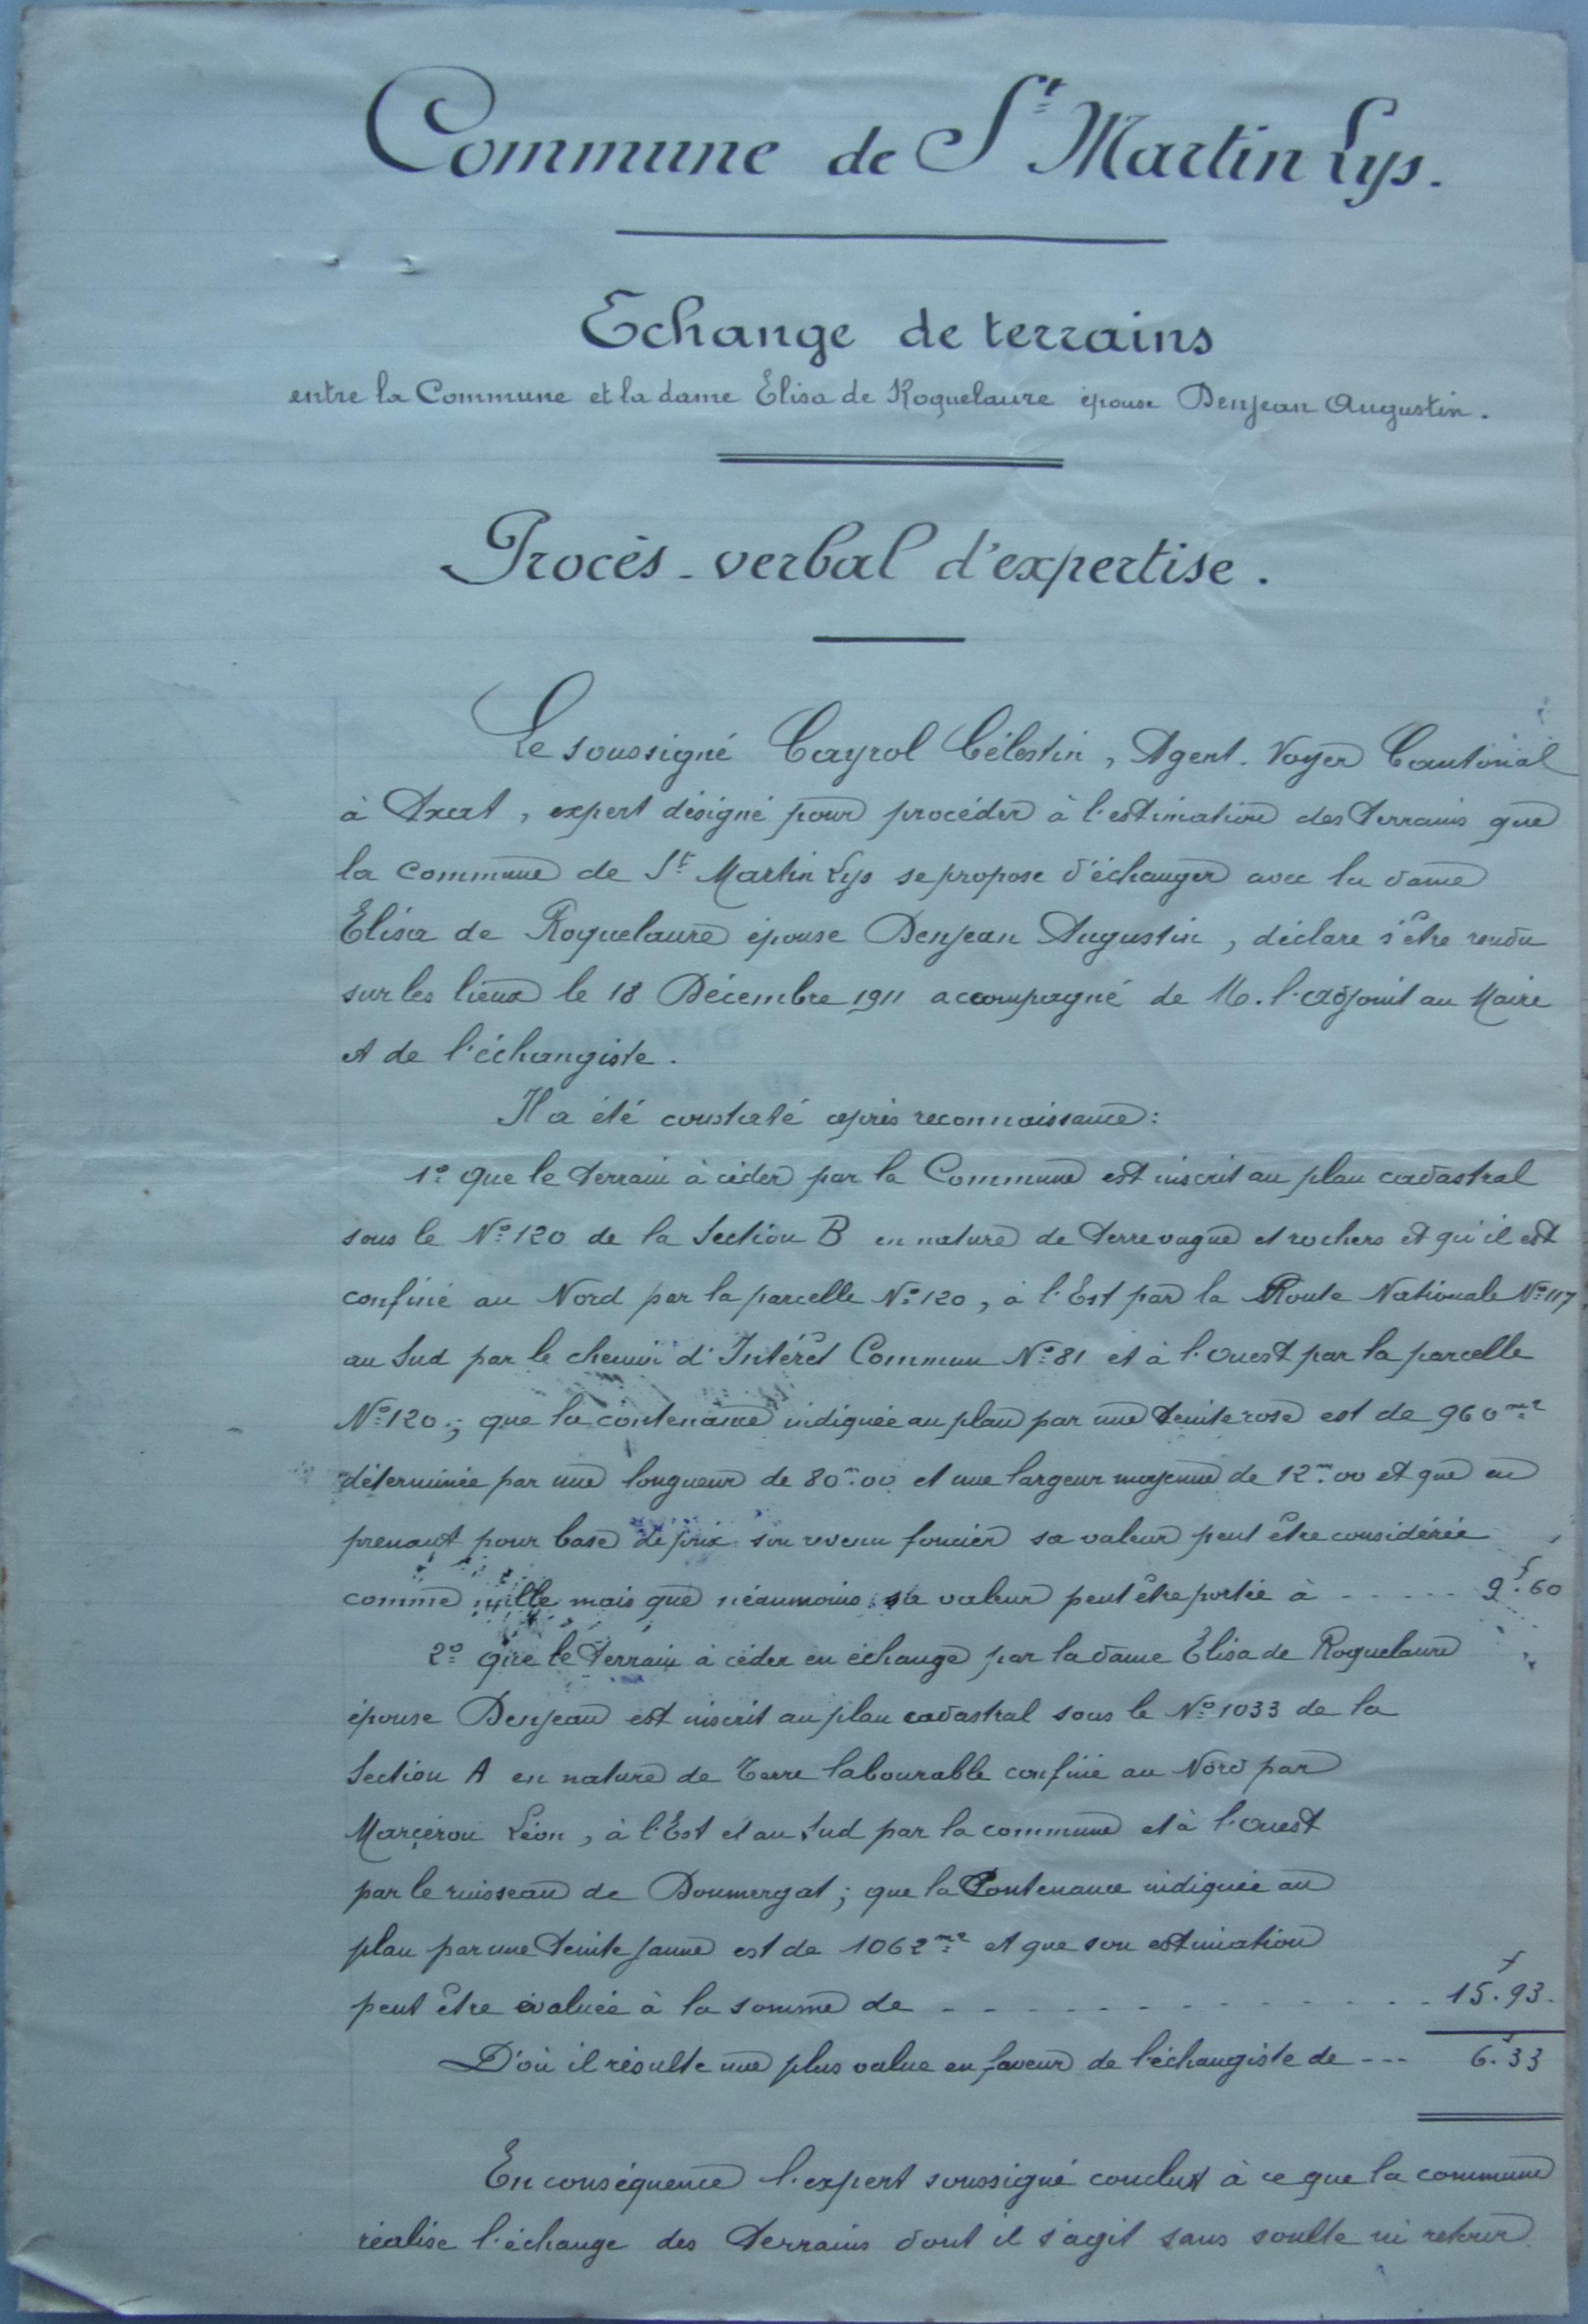 Commune de St Martin Lys.
Echange de terrains
entre la Commune et la dame Elisa de Roquelaure épouse Denjean Augustin.
Procès-verbal d'expertise.
Le soussigné Cayrol Célestin, Agent-Voyer Cantonal
à Axat, expert désigné pour procéder à l'estimation des terrains que
la commune de St Martin Lys se propose d'échanger avec la dame
Elisa de Roquelaure épouse Denjean Augustin, déclare s'être rendu
sur les lieux le 18 Décembre 1911 accompagné de M. l'adjoint au Maire
et de l'échangiste.
Il a été constaté après reconnaissance:
1° que le terrain à céder par la Commune est inscrit au plan cadastral
sous le N° 120 de la Section B en nature de terre vague et rochers et qu'il est
confiné au Nord par la parcelle N° 120, à l'Est par la Route Nationale N° 117
au Sud par le chemin d'Intérêt Commun N° 81 et à l'ouest par la parcelle
N° 120; que la contenance indiquée au plan par une teinte rose est de 960 m2
déterminée par une longueur de 80m.00 et une largeur moyenne de 12m.00 et que en
prenant pour base de prix son revenu foncier sa valeur peut être considérée
comme nulle mais que néanmoins sa valeur peut être portée à ----- 9f.60
2° que le terrain à céder en échange par la dame Elisa de Roquelaure
épouse Denjean est inscrit au plan cadastral sous le N° 1033 de la
Section A en nature de Terre labourable confiné au Nord par
Marcérou Léon, à l'Est et au Sud par la commune et à l'ouest
par le ruisseau de Doumergat; que la Contenance indiquée au
plan par une teinte jaune est de 1062 m2 et que son estimation
peut être évaluée à la somme de - - - - - - - - - - - - 15f.93.
D'où il résulte une plus value en faveur de l'échangiste de --- 6f.33
En conséquence l'expert soussigné conclut à ce que la commune
réalise l'échange des terrains dont il s'agit sans soulte ni retour